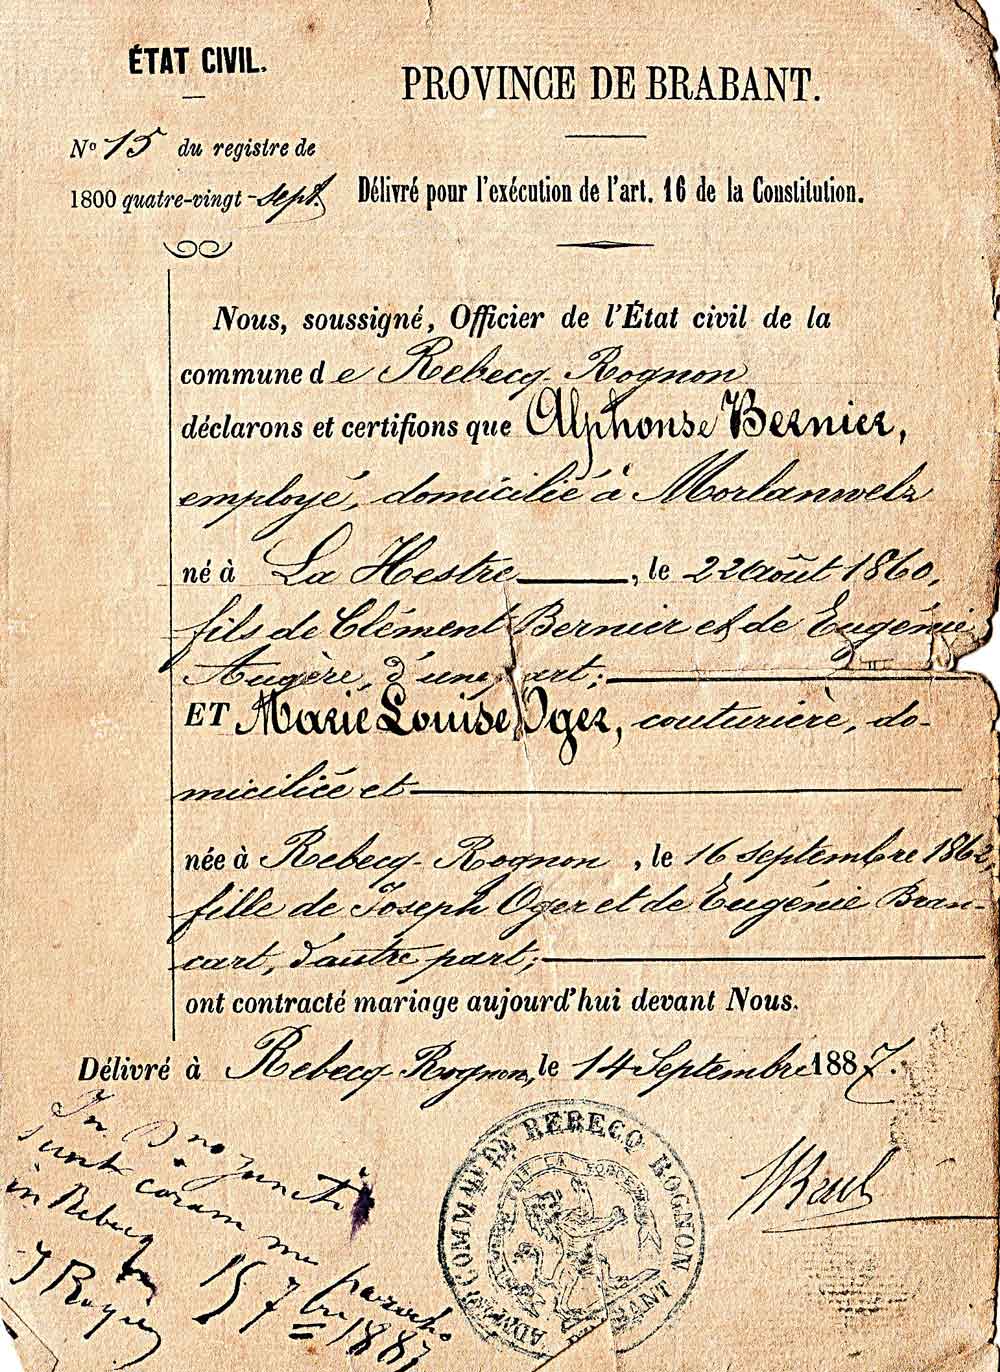 ÉTAT CIVIL.
PROVINCE DE BRABANT.
N° 15 du registre de
1800 quatre-vingt-sept
Délivré pour l'exécution de l'art. 16 de la Constitution.
Nous, soussigné, Officier de l'État civil de la
commune de Rebecq-Rognon
déclarons et certifions que Alphonse Bernier,
employé, domicilié à Morlanwelz
né à La Hestre, le 22 août 1860,
fils de Clément Bernier et de Eugénie
Augère, d'une part;
ET Marie Louise Oger, couturière, do-
miciliée et
née à Rebecq-Rognon, le 16 septembre 1862,
fille de Joseph Oger et de Eugénie Bran-
cart, d'autre part;
ont contracté mariage aujourd'hui devant Nous.
Délivré à Rebecq-Rognon, le 14 Septembre 1887.
In Dno juncti
sunt coram me parocho
in Rebecq 15 7bre 1887
COMMUNE DE REBECQ ROGNON
BRABANT
L'UNION FAIT LA FORCE